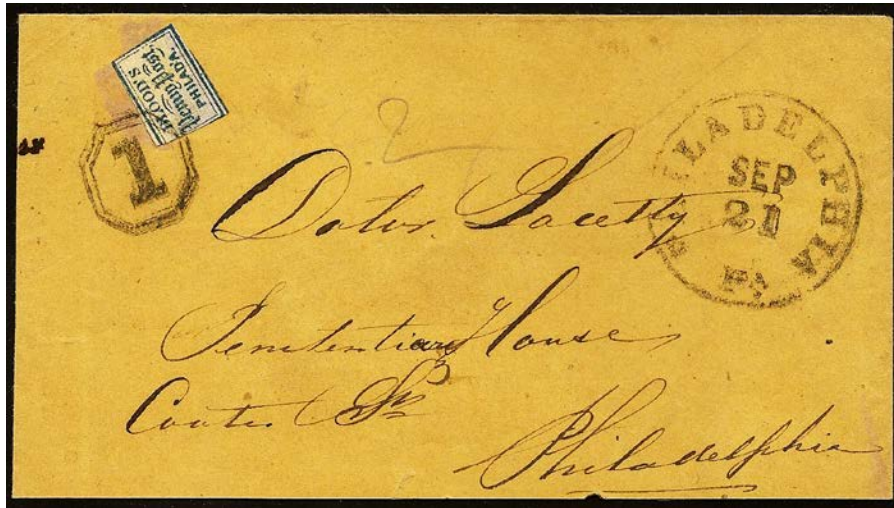 BLOOD'S
Penny Post,
PHILAD'A.
1
PHILADELPHIA
SEP
21
PA
Doctor Lacetty
Penitentiary House
Coates St
Philadelphia